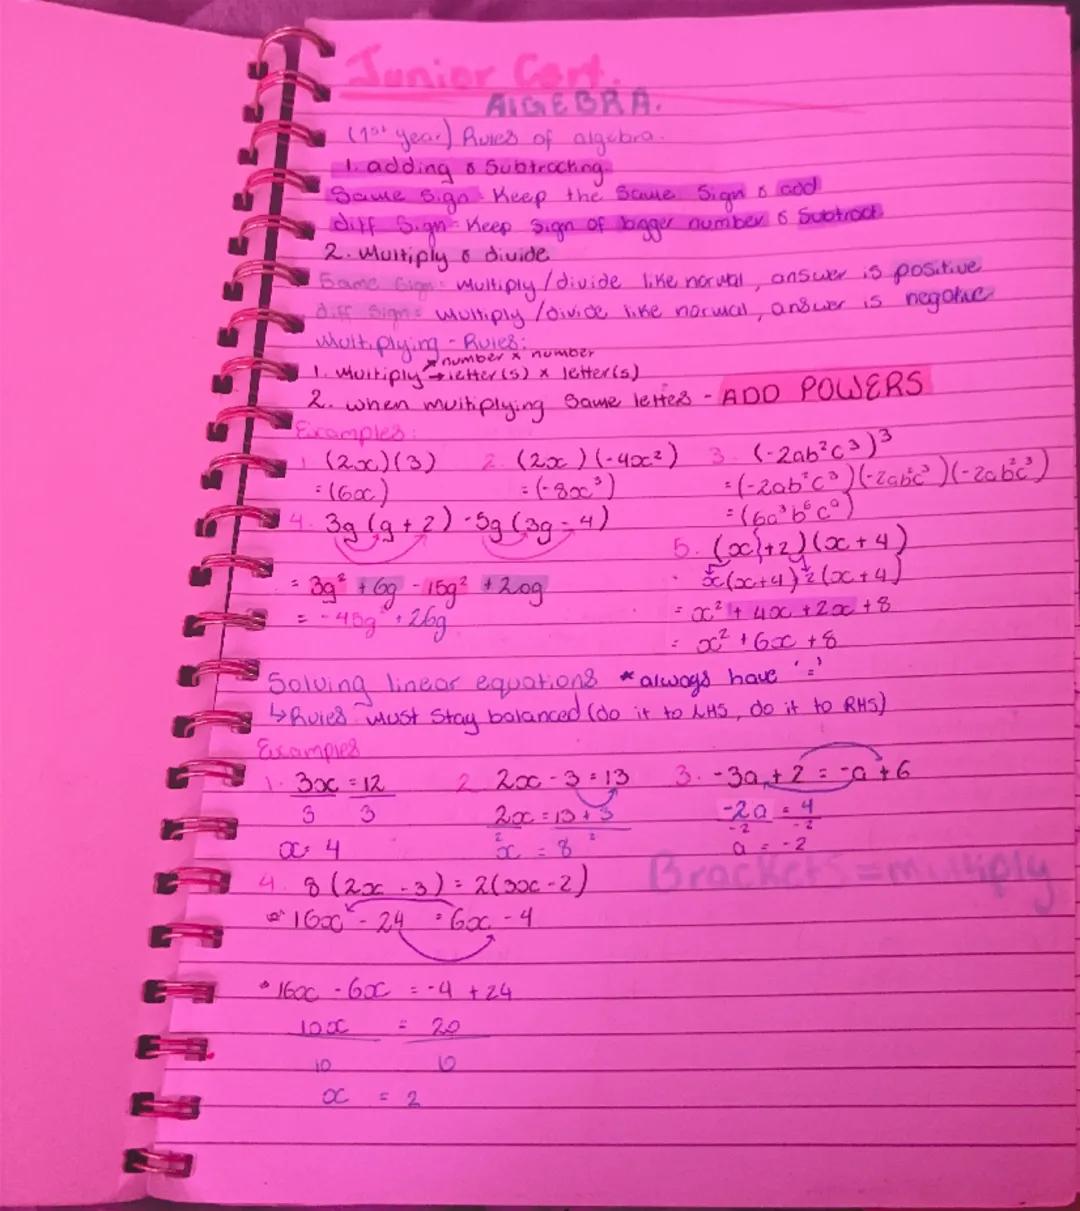 Junior Cert.
ALGEBRA.
(1st year) Rules of algebra.
1. adding & Subtracting.
Same sign - Keep the same sign & add
diff Sign - Keep sign of bigger number & Subtract
2. Multiply & divide
Same Sign = Multiply/divide like normal, answer is positive
diff sign = Multiply/divide like normal, answer is negative
Multiplying - Rules:
number x number
1. Multiply → letter(s) x letter(s)
2. when multiplying same letters - ADD POWERS
Examples:
1 (2x)(3) 2. (2x)(-4x²) 3. (-2ab²c³)³
= (6x) = (-8x³) = (-2ab²c³)(-2ab²c³)(-2ab²c³)
= (6a³b⁶c⁹)
4. 3g(g + 2) - 5g(3g - 4)
5. (x + 2)(x + 4)
x(x+4) 2(x+4)
= 3g² + 6g - 15g² + 20g
= x² + 4x + 2x + 8
= -45g + 26g
= x² + 6x + 8
Solving linear equations * always have '='
↳ Rules Must Stay balanced (do it to LHS, do it to RHS)
Examples
1. 3x = 12 2 2x - 3 = 13 3. -3a + 2 = -a + 6
3 3 2x = 13 + 3 -2a = 4
2 2 -2 -2
x = 4 x = 8 a = -2
Brackets = multiply
4. 8(2x - 3) = 2(3x - 2)
16x - 24 = 6x - 4
16x - 6x = -4 + 24
10x = 20
10 10
x = 2